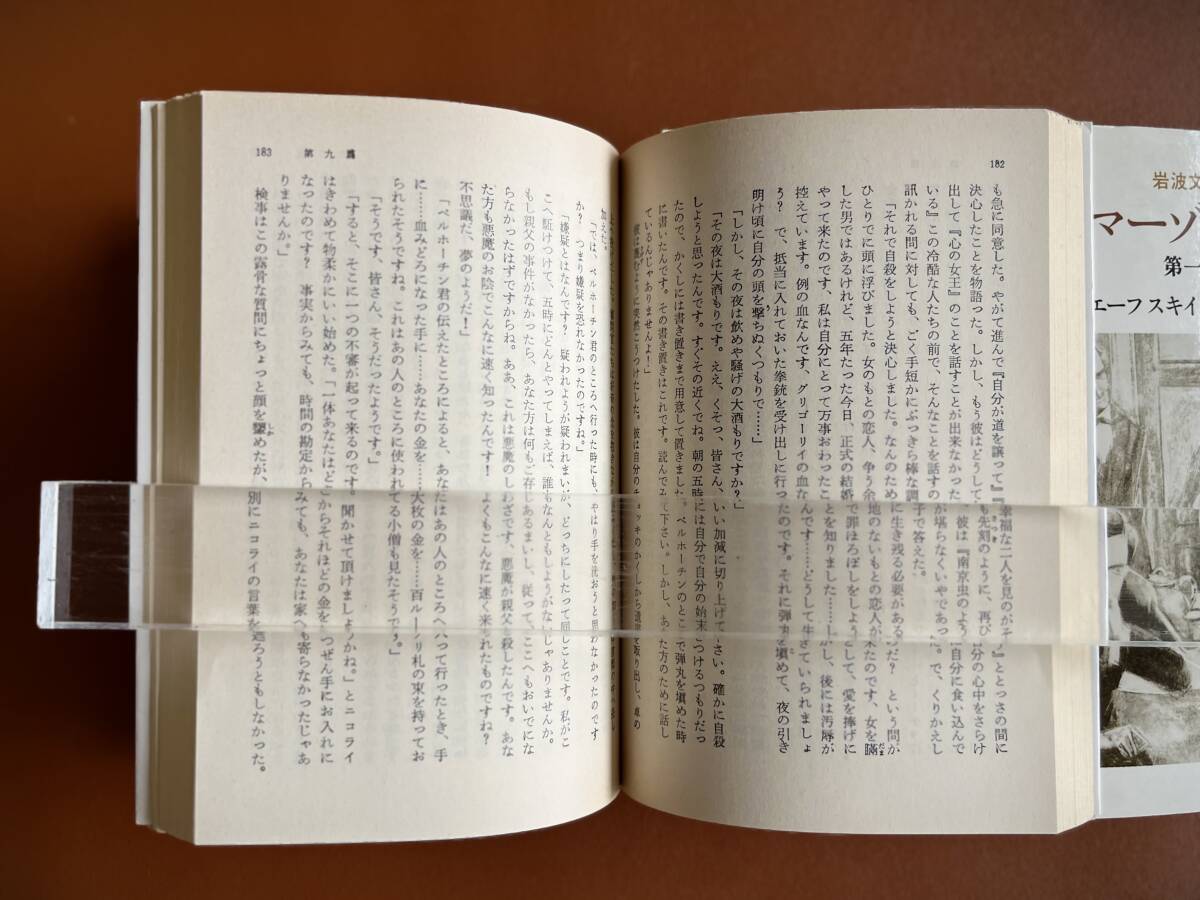 182
も急に同意した。やがて進んで『自分が道を譲って』『幸福な二人を見のがす』ととっさの間に
決心したことを物語った。しかし、もう彼はどうしても先刻のように、再び自分の心中をさらけ
出して『心の女王』のことを話すことが出来なかった。彼は『南京虫のように自分に食い込んで
いる』この冷酷な人たちの前で、そんなことを話すのが堪らなくいやであった。で、くりかえし
訊かれる問に対しても、ごく手短かにぶっきら棒な調子で答えた。
「それで自殺をしようと決心しました。なんのために生き残る必要があるのだ? という問が
ひとりでに頭に浮びました。女のもとの恋人、争う余地のないもとの恋人が来たのです、女を瞞
した男ではあるけれど、五年たった今日、正式の結婚で罪ほろぼしをしようとして、愛を捧げに
やって来たのです、私は自分にとって万事おわったことを知りました……しかし、後には汚辱が
控えています。例の血なんです、グリゴーリイの血なんです……どうして生きていられましょ
う? で、抵当に入れておいた拳銃を受け出しに行ったのです。それに弾丸を塡めて、夜の引き
明け頃に自分の頭を撃ちぬくつもりで……」
「しかし、その夜は飲めや騒げの大酒もりですか?」
「その夜は大酒もりです。ええ、くそっ、皆さん、いい加減に切り上げて下さい。確かに自殺
しようと思ったんです。すぐその近くでね。朝の五時には自分で自分の始末をつけるつもりだっ
たので、かくしには書き置きまで用意して置きました。ペルホーチンのとこで弾丸を塡めた時
に書いたんです。その書き置きはこれです。読んでみて下さい。しかし、あなた方のために話し
ているんじゃありませんよ!」
彼は自分のチョッキのかくしから遺書を取り出し、
183 第九篇
加えた。
「では、ペルホーチン君のところへ行った時にも、やはり手を洗おうと思わなかったのです
か? つまり嫌疑を恐れなかったのですね。」
「嫌疑とはなんです? 疑われようが疑われまいが、どっちにしたって同じことです。私がこ
こへ駈けつけて、五時にどんとやってしまえば、誰もなんともしようがないじゃありませんか。
もし親父の事件がなかったら、あなた方は何もご存じあるまいし、従って、ここへもおいでにな
らなかったはずですからね。ああ、これは悪魔のしわざです、悪魔が親父を殺したんです。あな
た方も悪魔のお陰でこんなに速く知ったんです! よくもこんなに速く来られたものですね?
不思議だ、夢のようだ!」
「ペルホーチン君の伝えたところによると、あなたはあの人のところへ入って行ったとき、手
に……血みどろになった手に……あなたの金を……大枚の金を……百ルーブリ札の束を持ってお
られたそうですね。これはあの人のところに使われてる小僧も見たそうです。」
「そうです、皆さん、そうだったようです。」
「すると、そこに一つの不審が起って来るのです。聞かせて頂けましょうかね。」とニコライ
はきわめて物柔かにいい始めた。「一体あなたはどこからそれほどの金を、とつぜん手にお入れに
なったのです? 事実からみても、時間の勘定からみても、あなたは家へも寄らなかったじゃあ
りませんか。」
検事はこの露骨な質問にちょっと顔を顰めたが、別にニコライの言葉を遮ろうともしなかった。
岩波文
マーゾ
第一
エーフスキイ